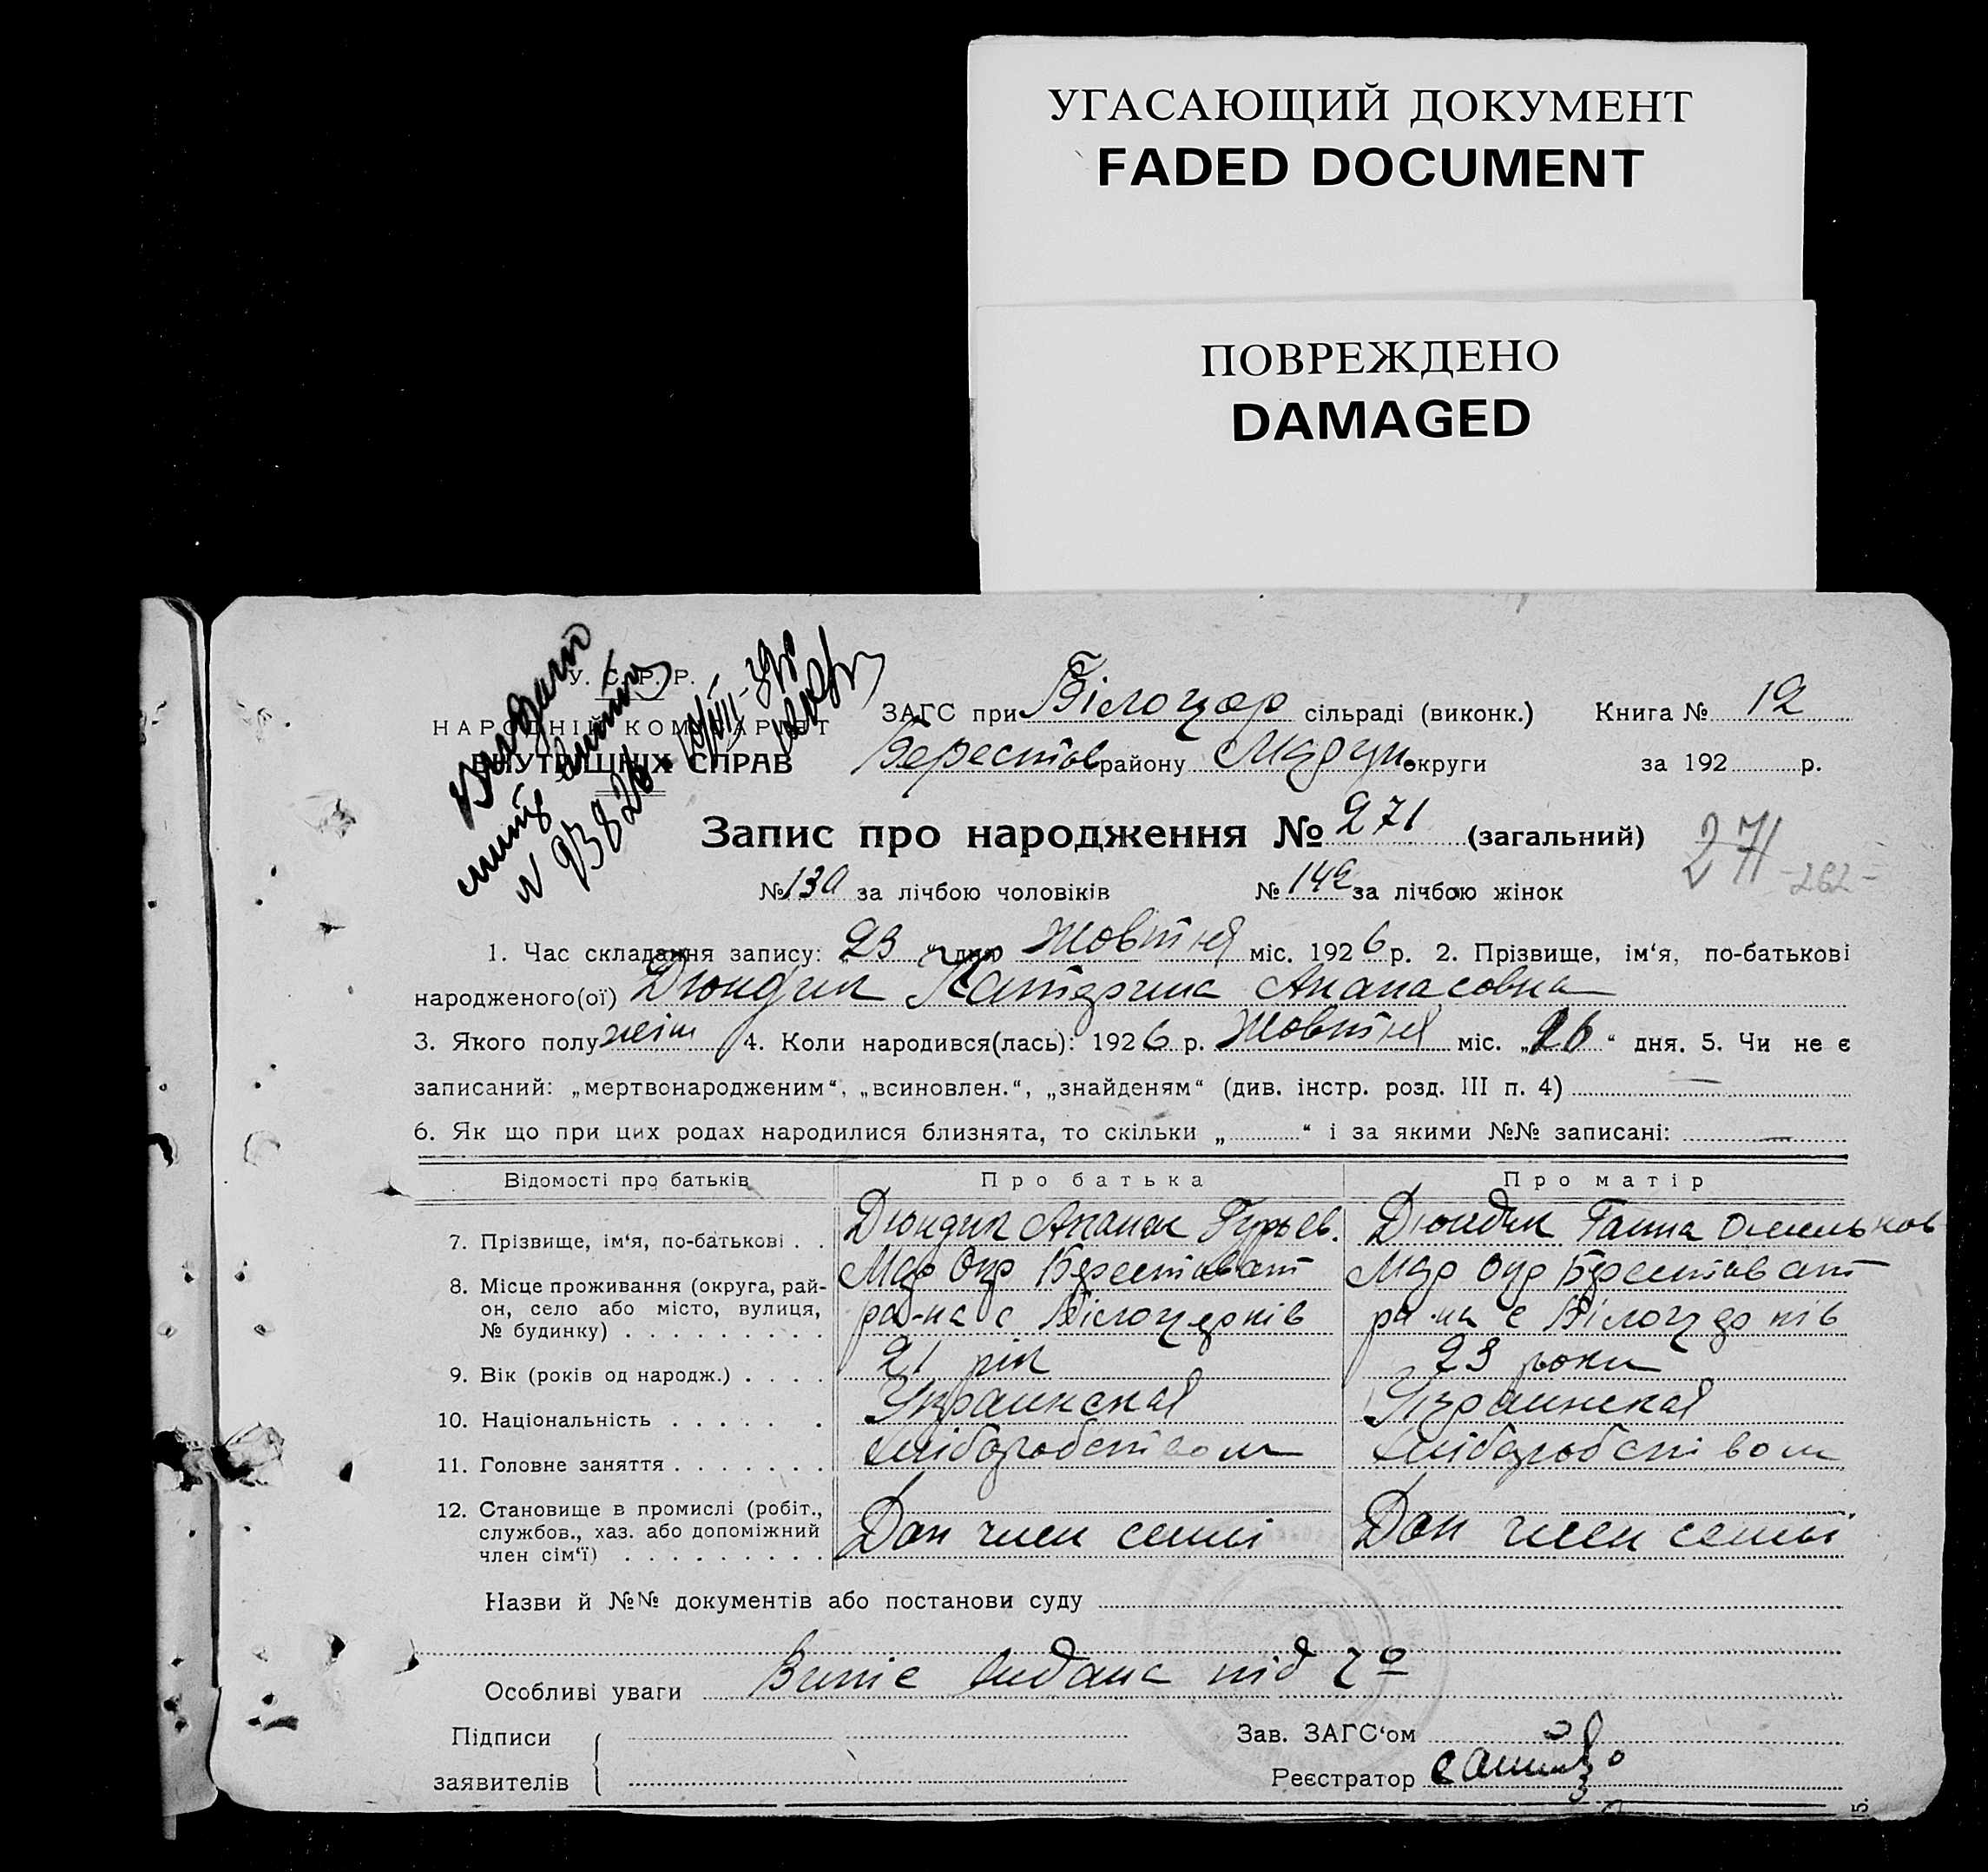 УГАСАЮЩИЙ ДОКУМЕНТ
FADED DOCUMENT
ПОВРЕЖДЕНО
DAMAGED
У. С. Р. Р.
НАРОДНІЙ КОМІСАРІЯТ
ВНУТРІШНІХ СПРАВ
ЗАГС при Білоцер сільраді (виконк.) Книга № 12
Берестов району Мар округи за 192 р.
Запис про народження № 271 (загальний)
271
-262-
№ 130 за лічбою чоловіків № 142 за лічбою жінок
1. Час складання запису: „23“ дня Жовтня міс. 1926 р. 2. Прізвище, ім‘я, по-батькові
народженого(ої) Дюндик Катерина Апанасовна
3. Якого полу жін 4. Коли народився(лась): 1926 р. Жовтня міс. „ “ дня. 5. Чи не є
записаний: „мертвонародженим“, „всиновлен.“, „знайденям“ (див. інстр. розд. III п. 4)
6. Як що при цих родах народилися близнята, то скільки „ “ і за якими №№ записані:
Відомості про батьків Про батька Про матір
7. Прізвище, ім‘я, по-батькові Дюндик Апанас Гурьев. Дюндик Ганна Омельков
8. Місце проживання (округа, рай- Мар Окр Берестоват Мар Окр Берестоват
он, село або місто, вулиця, ра-на с Білоцерків ра-на с Білоцерків
№ будинку)
9. Вік (років од народж.) 21 рік 23 роки
10. Національність Украинская Украинская
11. Головне заняття хліборобством хліборобством
12. Становище в промислі (робіт.,
службов., хаз. або допоміжний Доп член семьі Доп член семьі
член сім‘ї)
Назви й №№ документів або постанови суду
Особливі уваги Випис видана під
Підписи Зав. ЗАГС‘ом
заявителів Реєстратор